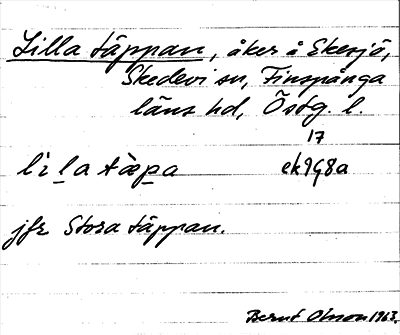 Lilla täppan, åker å Ekesjö,
Skedevi sn, Finspånga
läns hd, Östg. l.
17
lìla tàpa ek9G8a
jfr Stora täppan.
Bernt Olsson 1963.